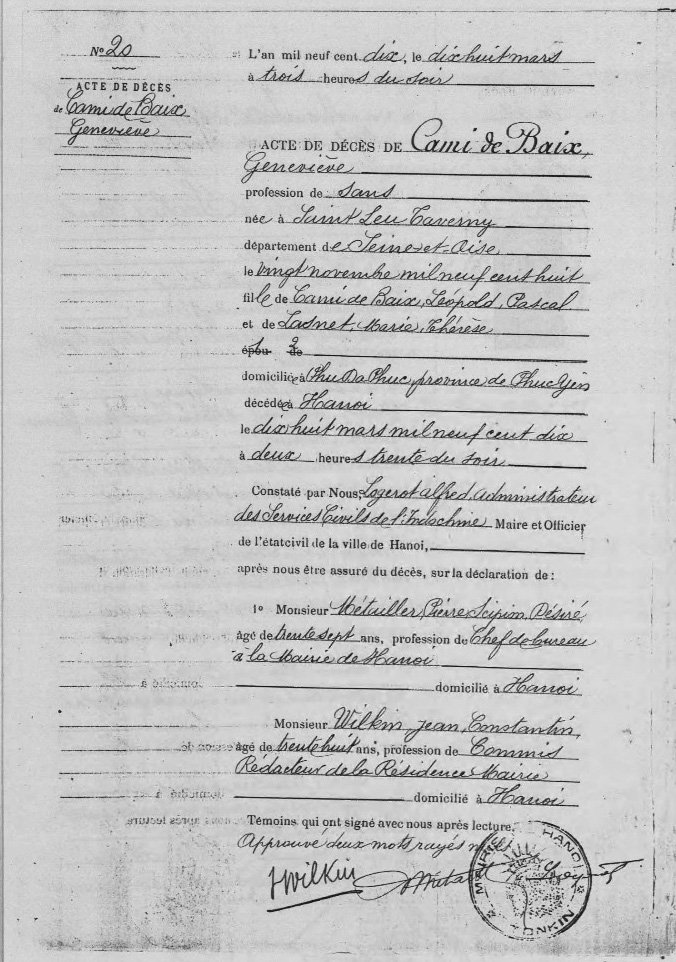 Nº 20
ACTE DE DÉCÈS
de Cami de Baix
Geneviève
L'an mil neuf cent dix, le dix huit mars
à trois heures du soir
ACTE DE DÉCÈS DE Cami de Baix,
Geneviève
profession de sans
née à Saint Leu Taverny
département de Seine-et-Oise
le vingt novembre mil neuf cent huit
fille de Cami de Baix, Léopold, Pascal
et de Lasnet, Marie, Thérèse
épou de
domiciliée à Phu Da Phuc, province de Phuc Yên
décédée à Hanoi
le dix huit mars mil neuf cent dix
à deux heures trente du soir
Constaté par Nous, Logerot Alfred, Administrateur
des Services Civils de l'Indochine Maire et Officier
de l'état civil de la ville de Hanoi,
après nous être assuré du décès, sur la déclaration de :
1º Monsieur Métailler, Pierre, Scipion, Désiré,
âgé de trente sept ans, profession de Chef de bureau
à la Mairie de Hanoi
domicilié à Hanoi
Monsieur Wilkin, Jean, Constantin,
âgé de trente huit ans, profession de Commis
Rédacteur de la Résidence Mairie
domicilié à Hanoi
Témoins qui ont signé avec nous après lecture.
Approuvé deux mots rayés
JWilkin
MAIRIE HANOI
TONKIN